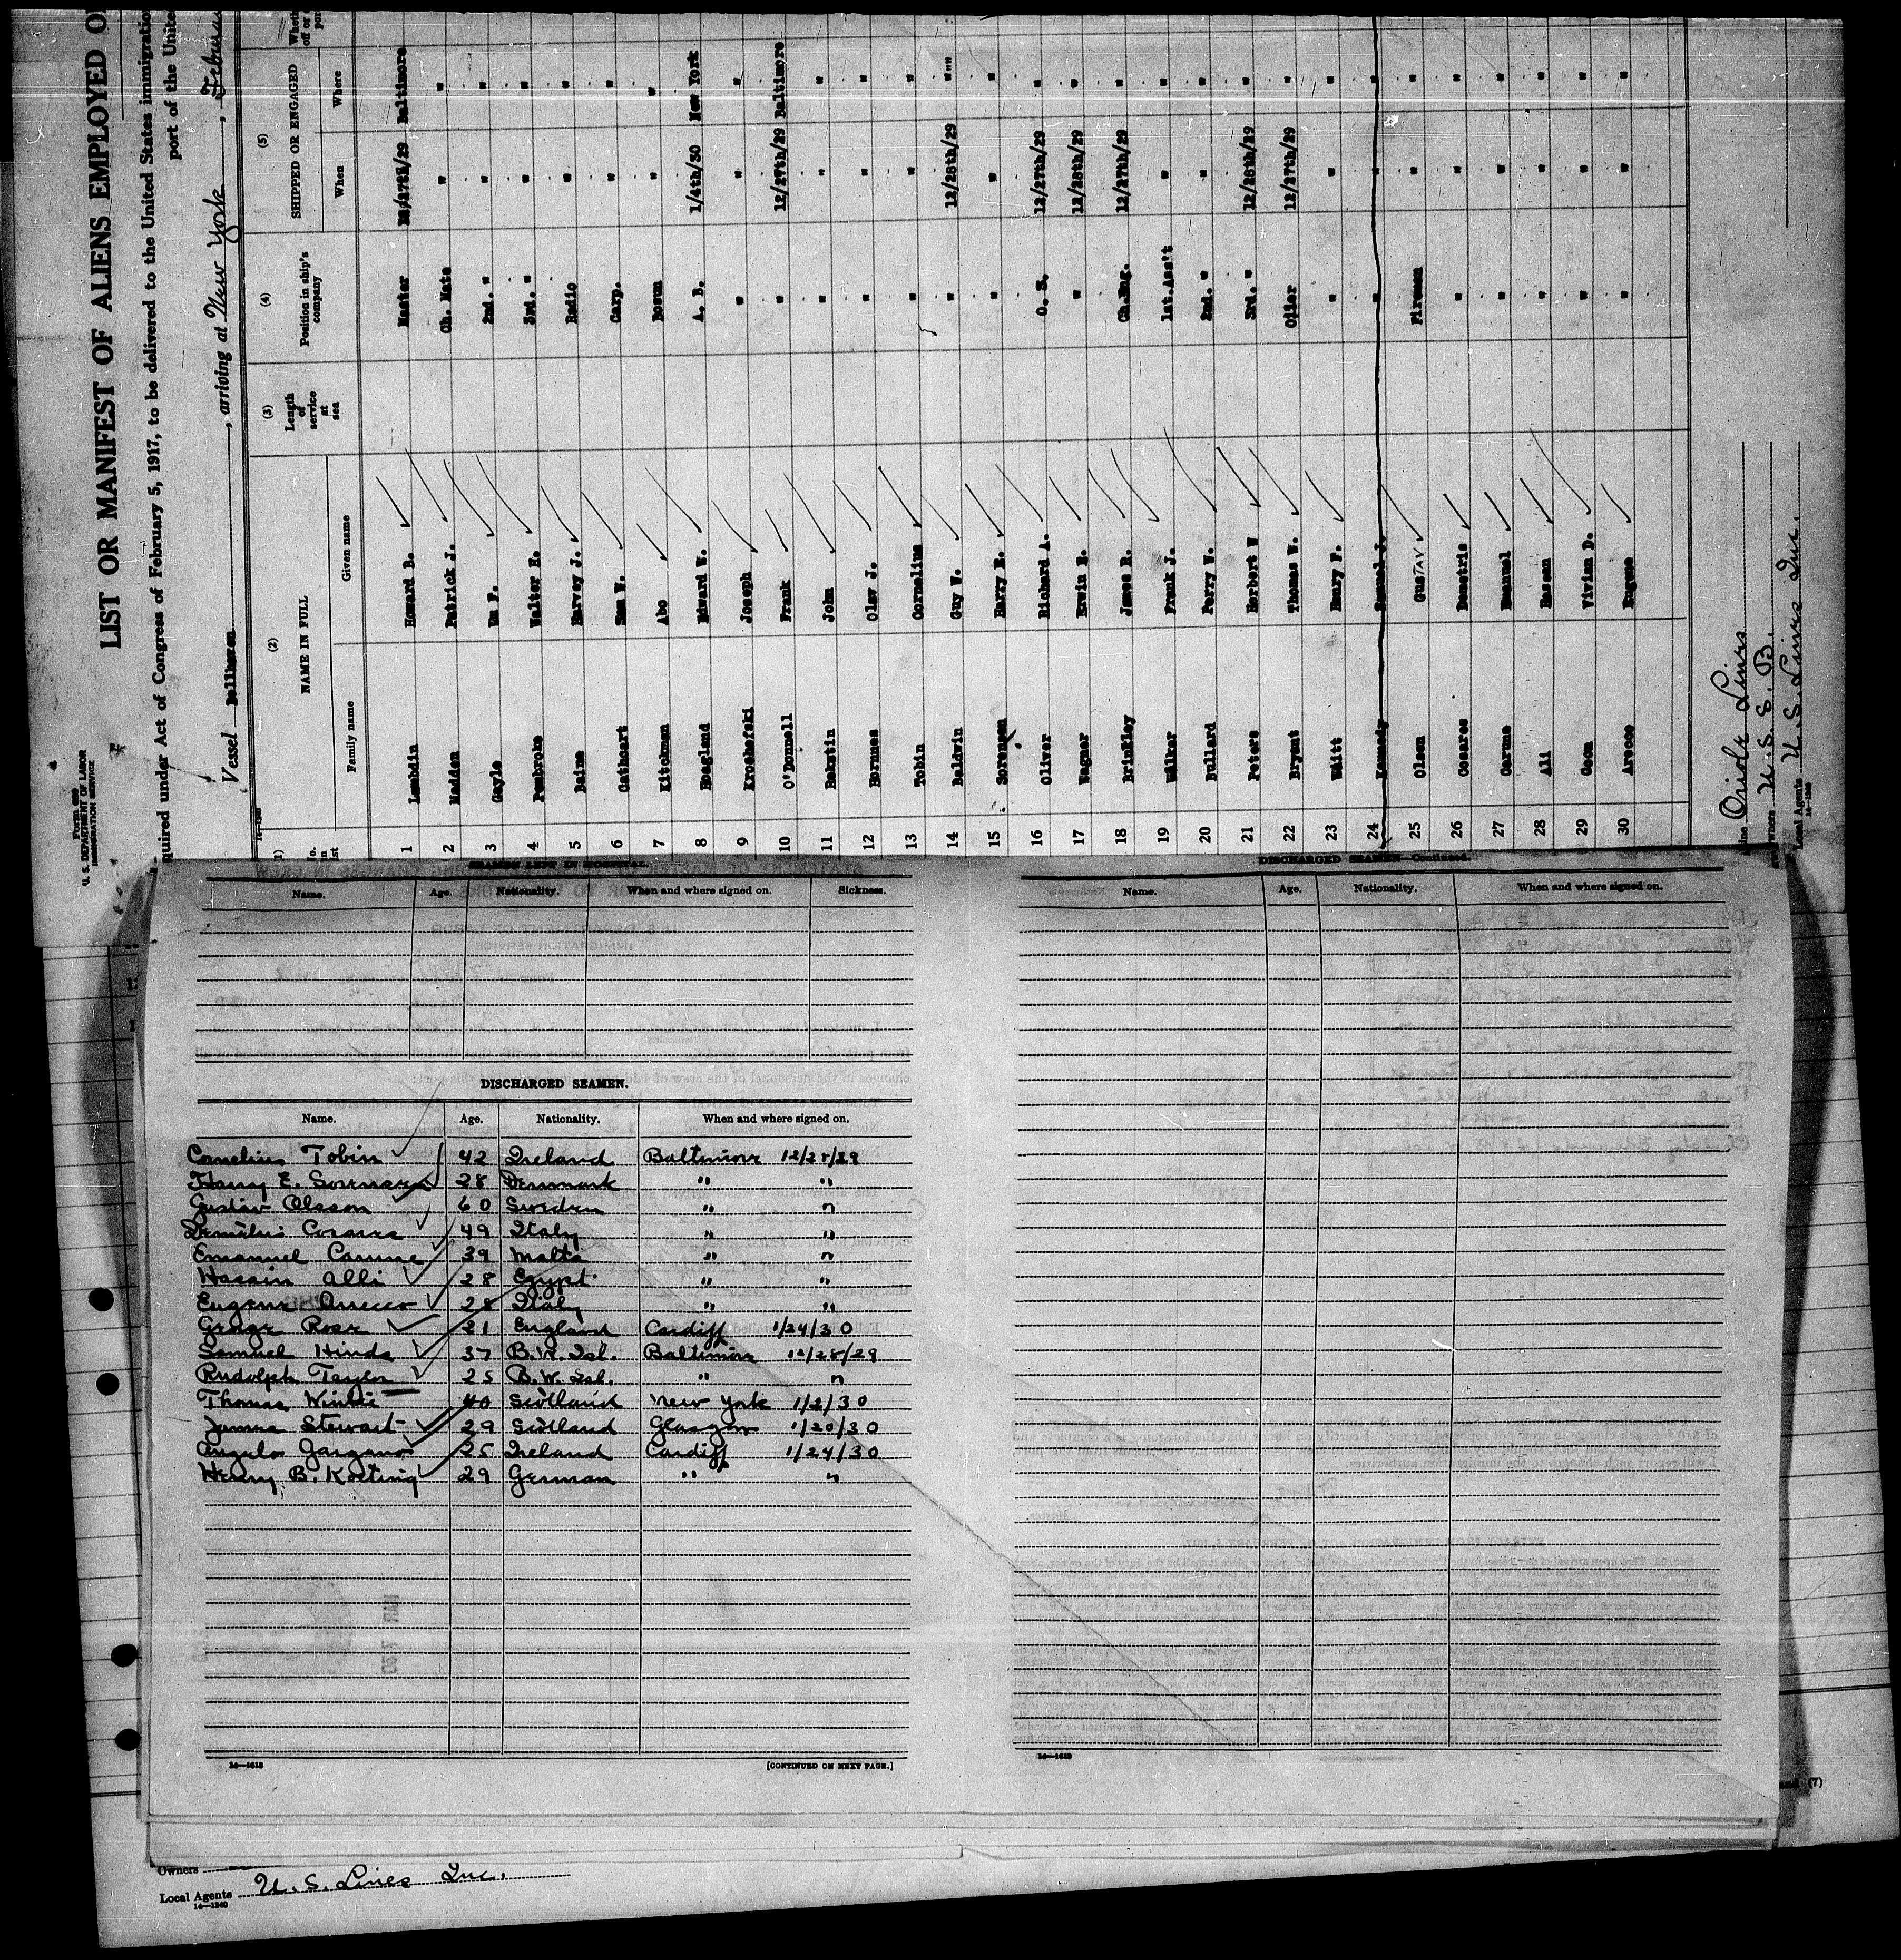 Form 689
U. S. DEPARTMENT OF LABOR
IMMIGRATION SERVICE
LIST OR MANIFEST OF ALIENS EMPLOYED O
quired under Act of Congress of February 5, 1917, to be delivered to the United States immigration
port of the Unite
Vessel Bellhaven, arriving at New York, Februa
(2) (3) (4) (5)
NAME IN FULL Length of service at sea Position in ship's company SHIPPED OR ENGAGED
Family name Given name When Where
1 Lambdin Howard B. Master 12/27th/29 Baltimore
2 Madden Patrick J. Ch. Mate " "
3 Gayle Wm F. 2nd. " " "
4 Pembroke Walter H. 3rd. " " "
5 Harvey J. Radio " "
6 Cathcart Sam W. Carp. " "
7 Kitchman Abe Bosun " "
8 England Edward W. A. B. 1/4th/30 New York
9 Joseph " " "
10 O'Donnell Frank " 12/27th/29 Baltimore
11 John " " "
12 Olav J. " " "
13 Tobin Cornelius " " "
14 Baldwin Guy W. " 12/28th/29 "
15 Sorensen Harry E. " " "
16 Oliver Richard A. O. S. 12/27th/29 "
17 Wagner Erwin E. " 12/28th/29 "
18 Brinkley James R. Ch.Eng. 12/27th/29 "
19 Walker Frank J. 1st.Ass't " "
20 Bullard Perry V. 2nd. " " "
21 Peters Herbert W 3rd. " 12/28th/29 "
22 Bryant Thomas W. Oiler 12/27th/29 "
23 Witt Henry F. " " "
24 Kennedy Samuel J. " " "
25 Olsen GusTAV Fireman " "
26 Cosares Demetris " " "
27 Carune Emanuel " " "
28 Ali Hassan " " "
29 Coon Vivian D. " " "
30 Arecco Eugene " " "
U. S. S. B.
Local Agents U. S. Lines Inc.
SEAMEN LEFT IN HOSPITAL.
Name. Age. Nationality. When and where signed on. Sickness.
DISCHARGED SEAMEN.
Name. Age. Nationality. When and where signed on.
Cornelius Tobin 42 Ireland Baltimore 12/28/29
Harry E. Sorensen 28 Denmark " "
Gustav Olsson 60 Sweden " "
Demetris Cosares 49 Italy " "
Emanuel Carune 39 Malta " "
Hassin Alli 28 Egypt " "
Eugene Arecco 28 Italy " "
George Rose 21 England Cardiff 1/24/30
Samuel Hinds 37 B. W. Isl. Baltimore 12/28/29
Rudolph Taylor 25 B. W. Isl. " "
Thomas 40 Scotland New York 1/2/30
James Stewart 29 Scotland Glasgow 1/20/30
Angelo Gargano 25 Ireland Cardiff 1/24/30
Henry B. Kolting 29 German " "
14—1618
[CONTINUED ON NEXT PAGE.]
DISCHARGED SEAMEN—Continued.
Name. Age. Nationality. When and where signed on.
14—1618
Owners
Local Agents U. S. Lines Inc.
14—1240